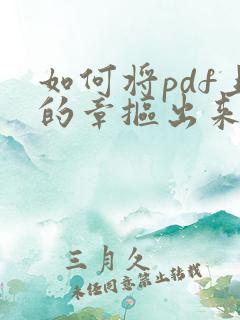 如何将pdf上
的章抠出来
三月久
未经同意禁止转载